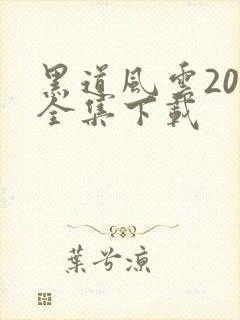 黑道風雲20
全集下載
葉兮涼